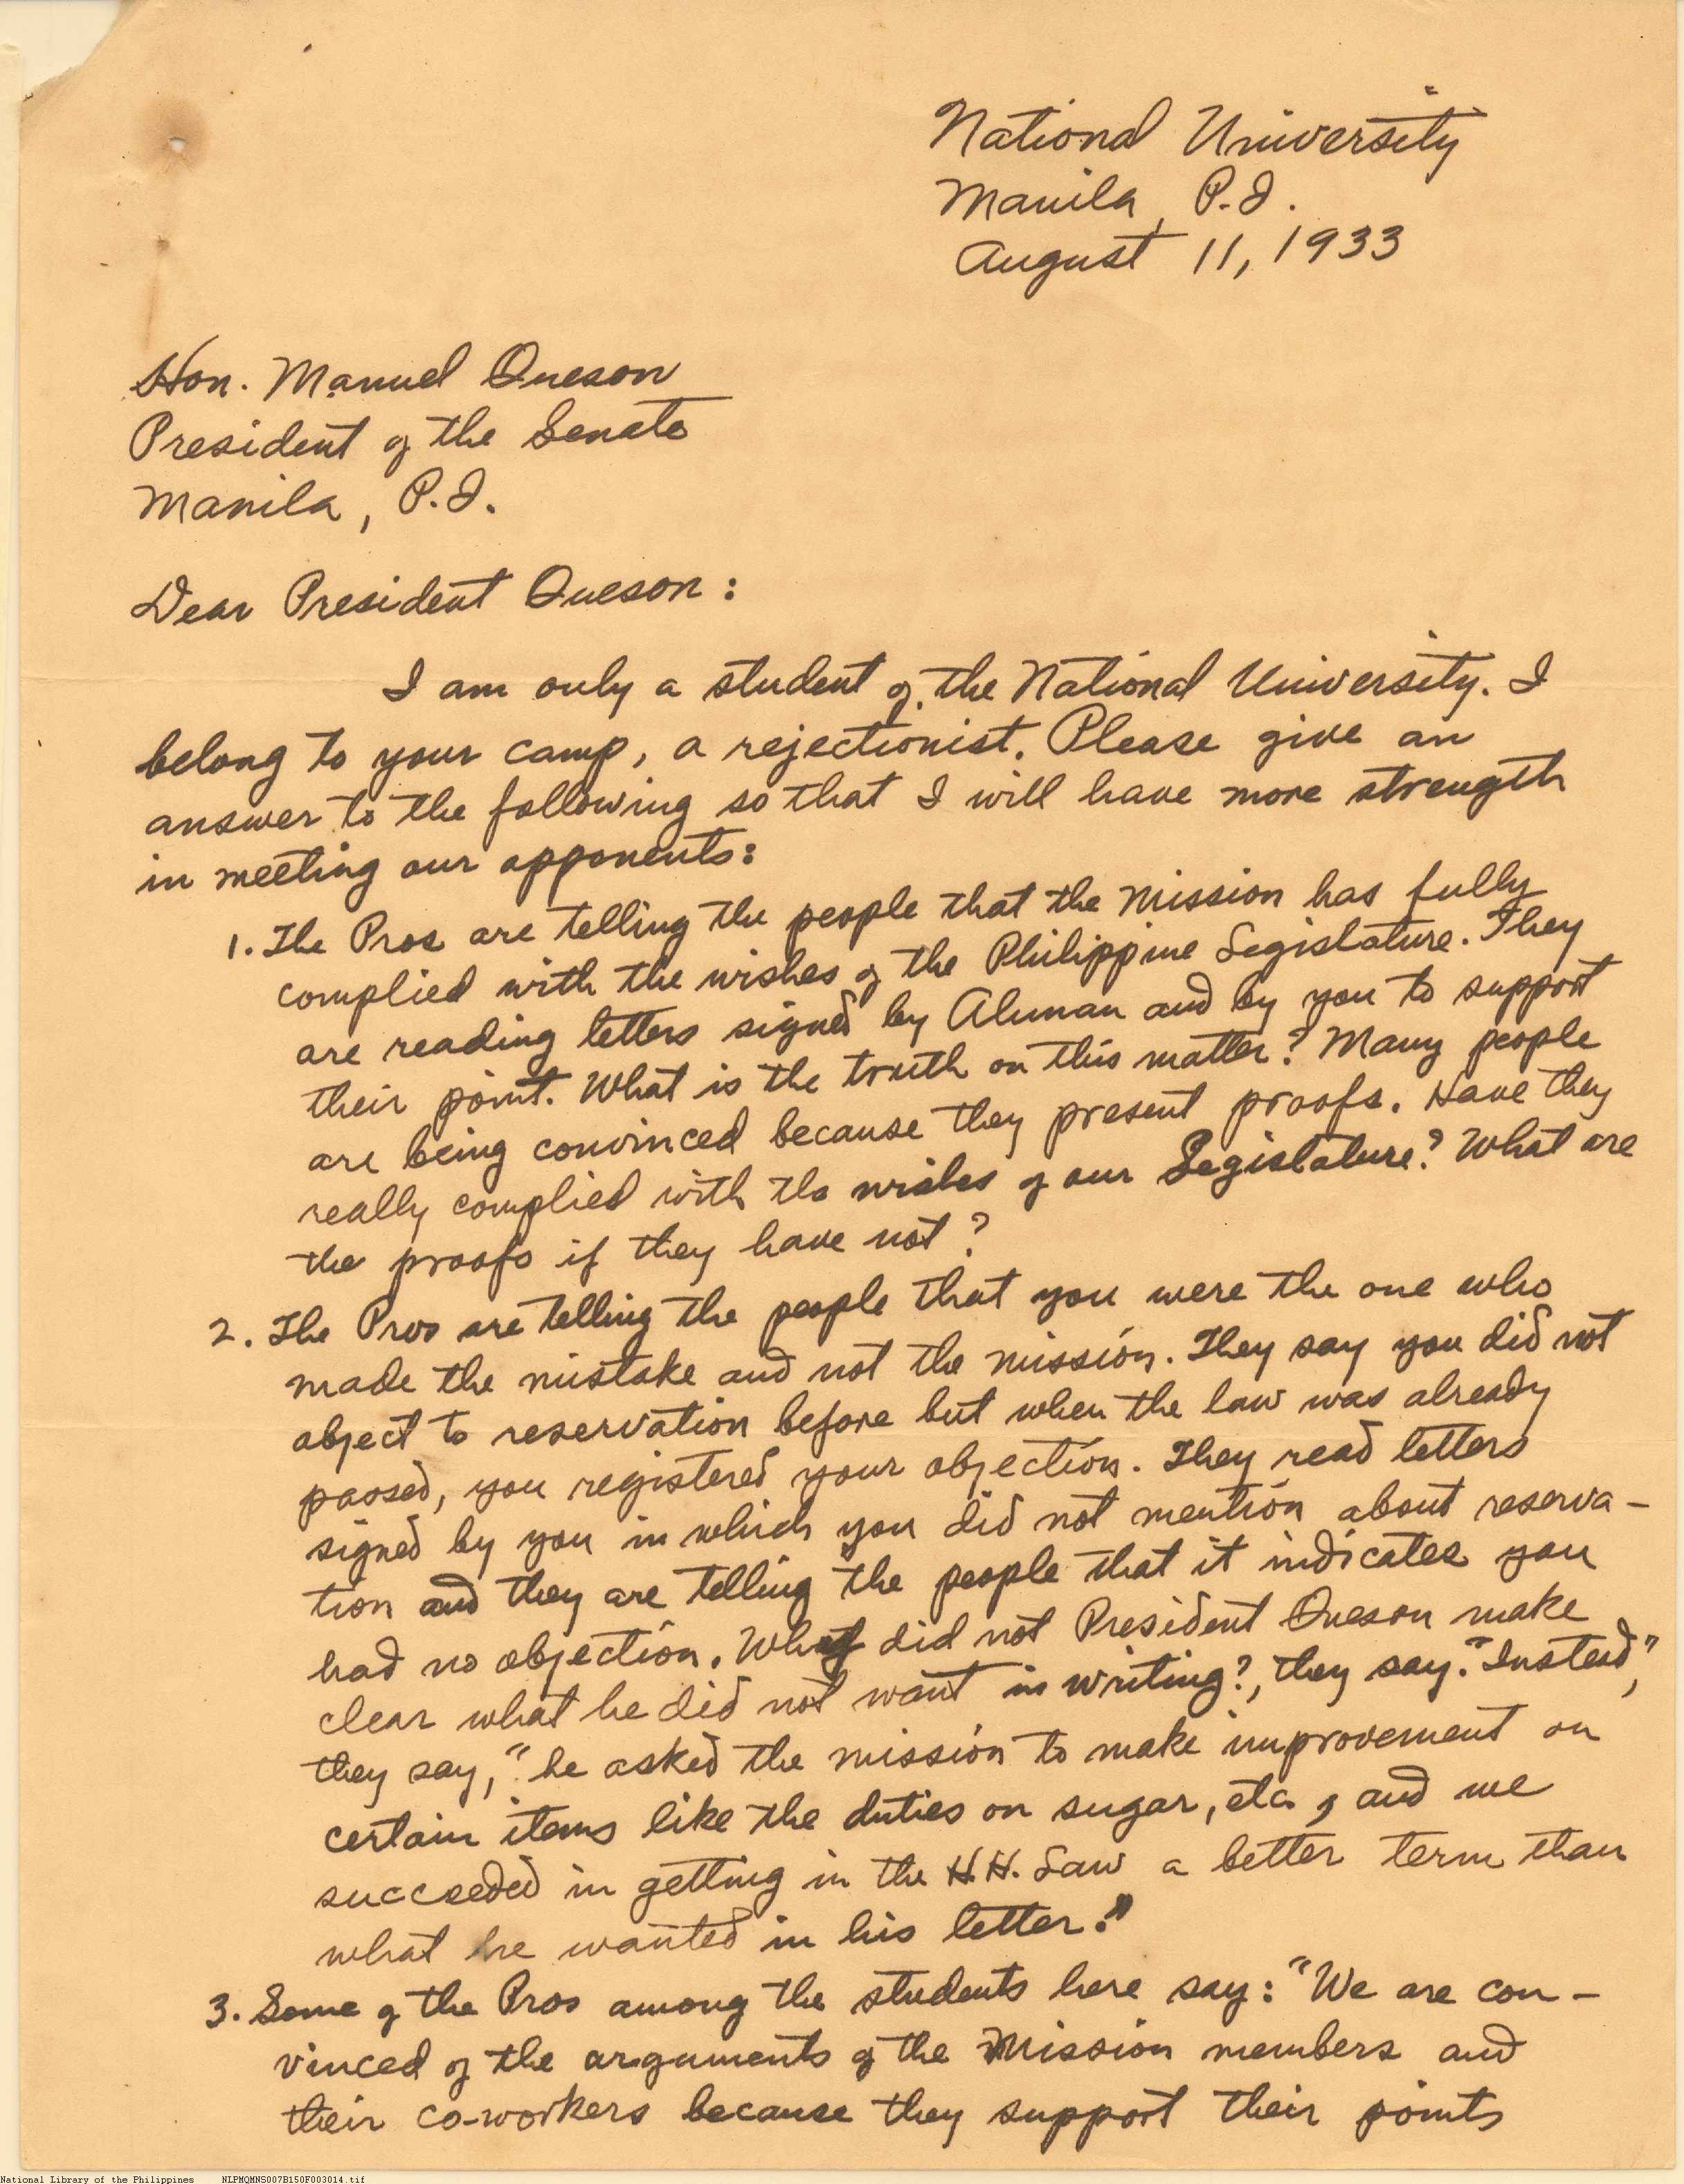 National University
Manila, P.I.
August 11, 1933
Hon. Manuel Queson
President of the Senate
Manila, P.I.
Dear President Queson:
I am only a student of the National University. I
belong to your camp, a rejectionist. Please give an
answer to the following so that I will have more strength
in meeting our opponents:
1. The Pros are telling the people that the Mission has fully
complied with the wishes of the Philippine Legislature. They
are reading letters signed by Alunan and by you to support
their point. What is the truth on this matter? Many people
are being convinced because they present proofs. Have they
really complied with the wishes of our Legislature? What are
the proofs if they have not?
2. The Pros are telling the people that you were the one who
made the mistake and not the mission. They say you did not
object to reservation before but when the law was already
passed, you registered your objection. They read letters
signed by you in which you did not mention about reserva-
tion and they are telling the people that it indicates you
had no objection. did not President Queson make
clear what he did not want in writing?, they say. "Instead,"
they say, "he asked the mission to make improvement on
certain items like the duties on sugar, etc., and we
succeeded in getting in the H.H. Law a better term than
what he wanted in his letter."
3. Some of the Pros among the students here say: "We are con-
vinced of the arguments of the Mission members and
their co-workers because they support their points
National Library of the Philippines NLPMQMNS007B150F003014.tif